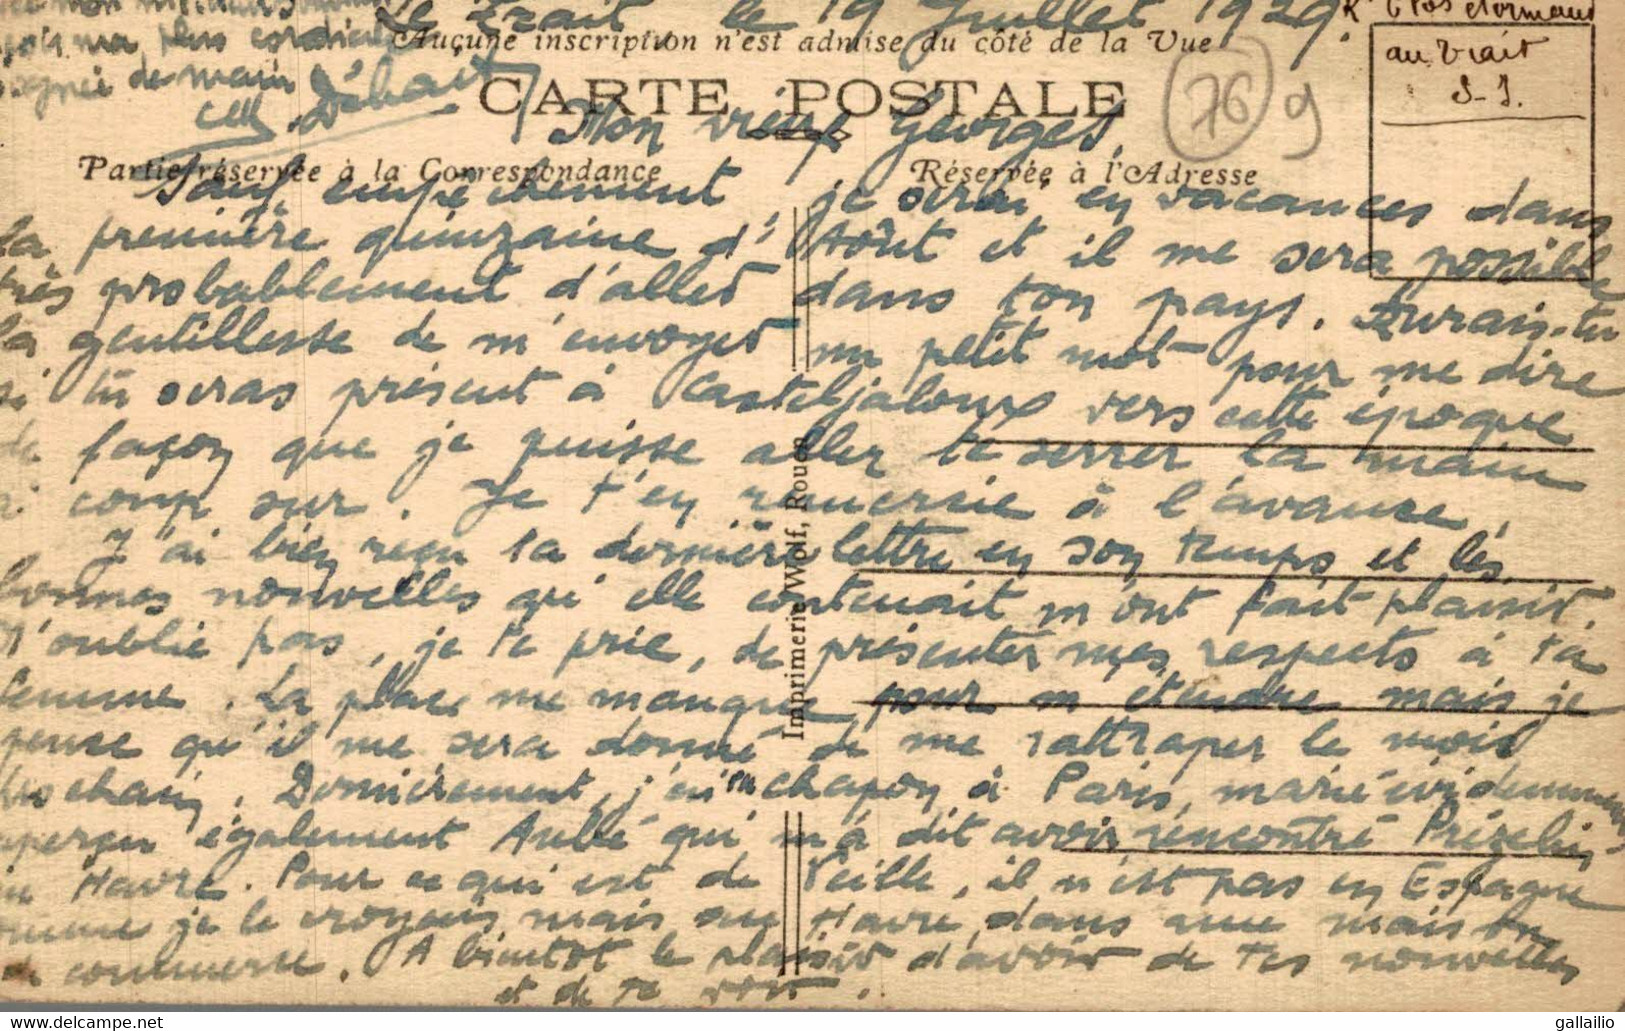 Le Trait le 19 Juillet 1929.
Aucune inscription n'est admise du côté de la Vue
CARTE POSTALE
76 9
au Trait
S-I.
Mon vieux Georges,
Partie réservée à la Correspondance
Réservée à l'Adresse
Sauf empêchement, je serai en vacances dans
la première quinzaine d'Août et il me sera possible
très probablement d'aller dans ton pays. Aurais-tu
la gentillesse de m'envoyer un petit mot pour me dire
si tu seras présent à Casteljaloux vers cette époque
de façon que je puisse aller te serrer la main
à coup sur. Je t'en remercie à l'avance.
J'ai bien reçu ta dernière lettre en son temps et les
bonnes nouvelles qu'elle contenait m'ont fait plaisir.
N'oublie pas, je te prie, de présenter mes respects à ta
femme. La place me manque pour m'étendre mais je
pense qu'il me sera donné de me rattraper le mois
prochain. Dernièrement, j'ai vu chapon à Paris, marié évidemment
aperçu également Aubé qui m'a dit avoir rencontré Prézelin
au Havre. Pour ce qui est de Veille, il n'est pas en Espagne
comme je le croyais, mais au Havre, dans une maison
de commerce. A bientot le plaisir d'avoir de tes nouvelles
et de te voir.
ma plus cordiale
poignée de main
Imprimerie Wolf, Rouen
gallailio